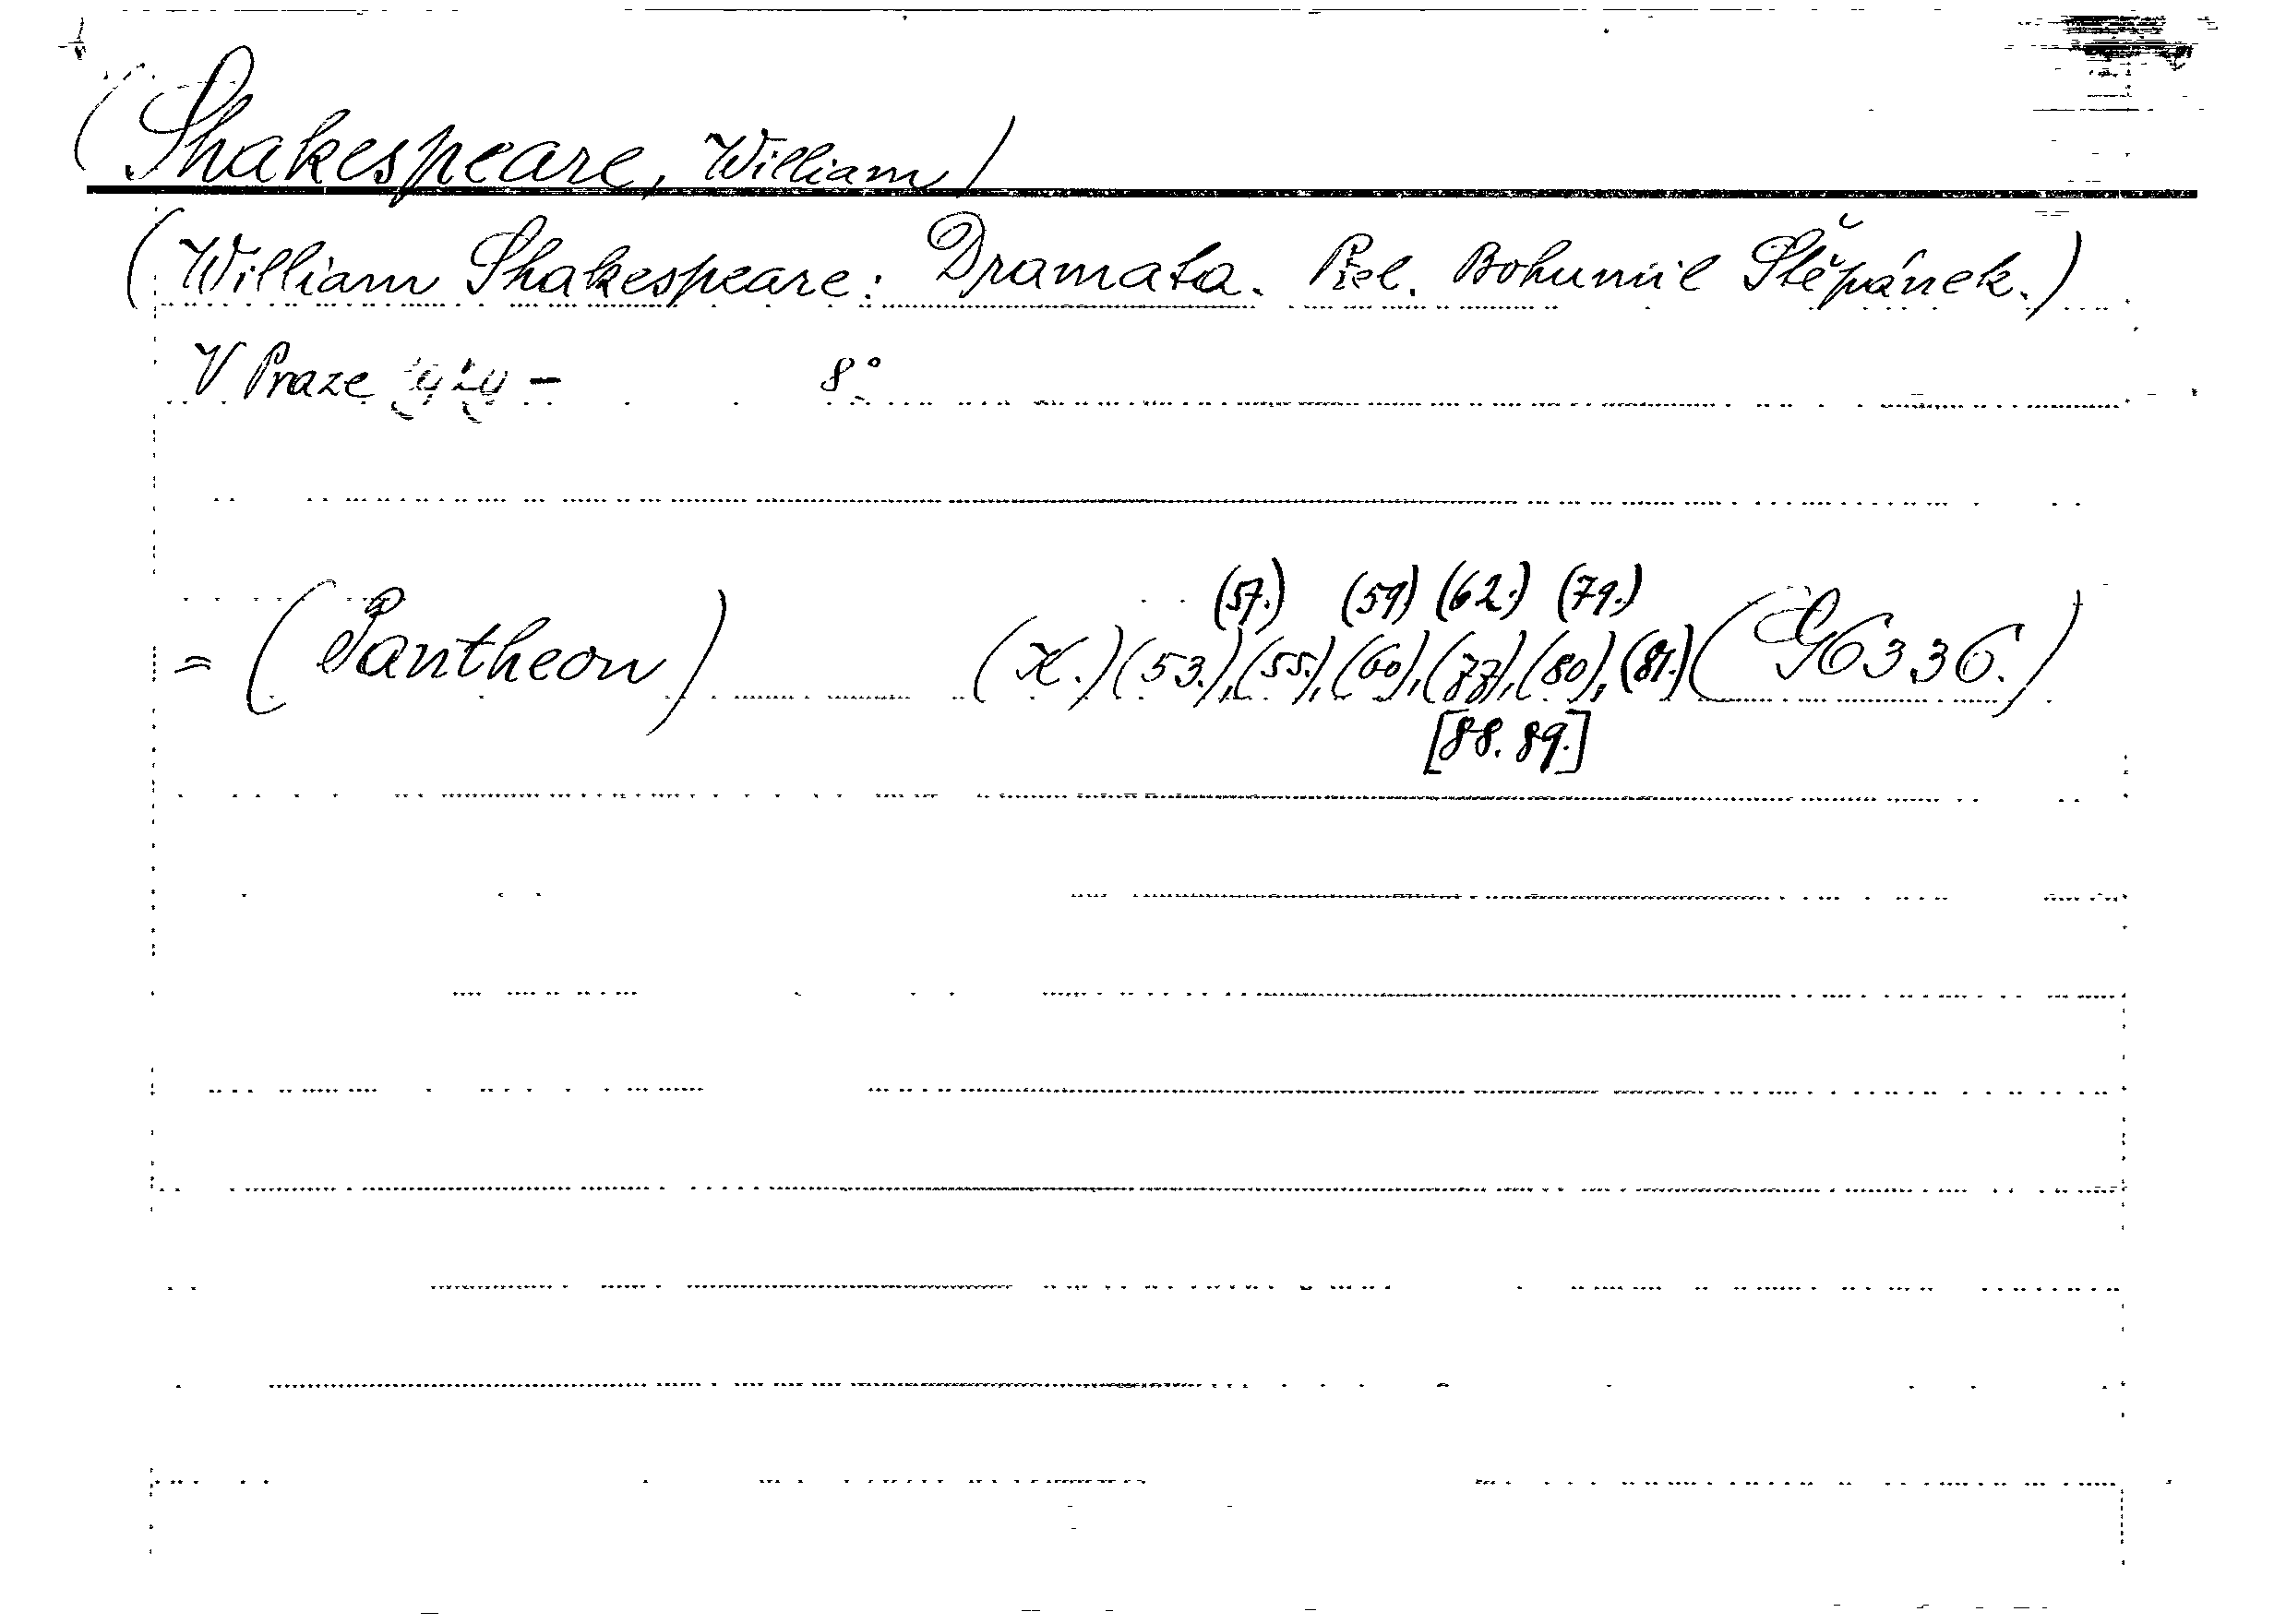 (Shakespeare, William)
(William Shakespeare: Dramata. Přel. Bohumil Štěpánek.)
V Praze – 8°
(57.) (59) (62.) (79.)
= (Pantheon) (X.) (53.), (55), (60), (77), (80), (81.) (G 6336.)
[88. 89.]